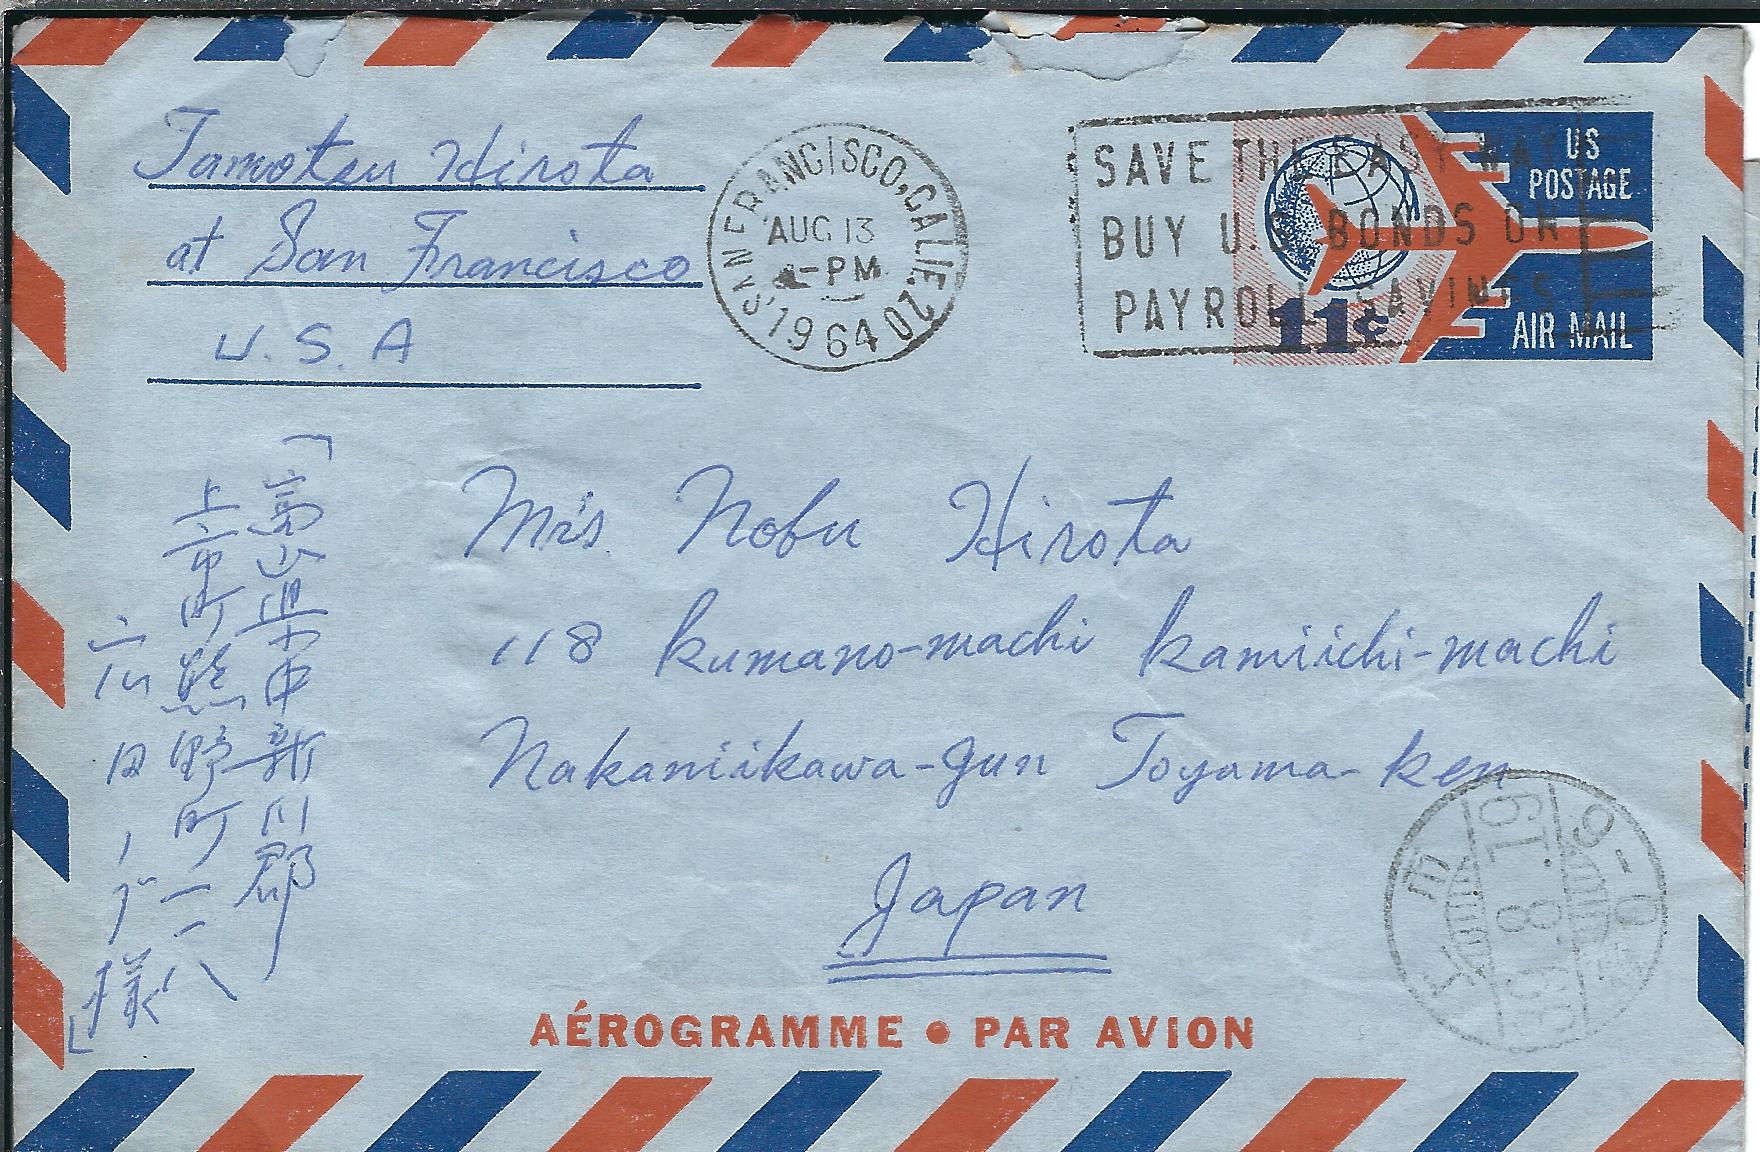 Tamotsu Hirota
at San Francisco
U.S.A
SAN FRANCISCO, CALIF. 02
AUG 13
-PM
1964
SAVE THE EASY WAY
BUY U.S. BONDS ON
PAYROLL SAVINGS
US
POSTAGE
11¢
AIR MAIL
Mrs. Nobu Hirota
118 Kumano-machi Kamiichi-machi
Nakaniikawa-gun Toyama-ken
Japan
「富山県中新川郡
上市町熊野町一一八
広田 様」
AÉROGRAMME • PAR AVION
上市